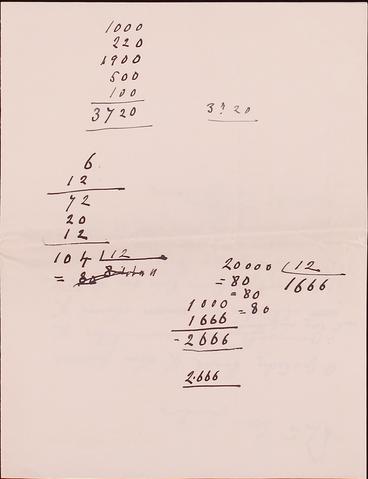 1000
220
1900
500
100
3720 3720
6
12
72
20
12
104 12
= 80
20000 12
= 80 1666
= 80
1000 = 80
1666
- 2666
2.666